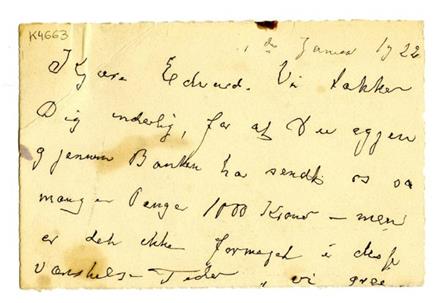 K4663
1ste Januar 1922
Kjære Edvard. Vi takker
Dig inderlig, for at Du
gjennem Banken har sendt os saa
mange Penge 1000 Kroner – men
er det ikke formeget i disse
Vanskelige Tider, vi